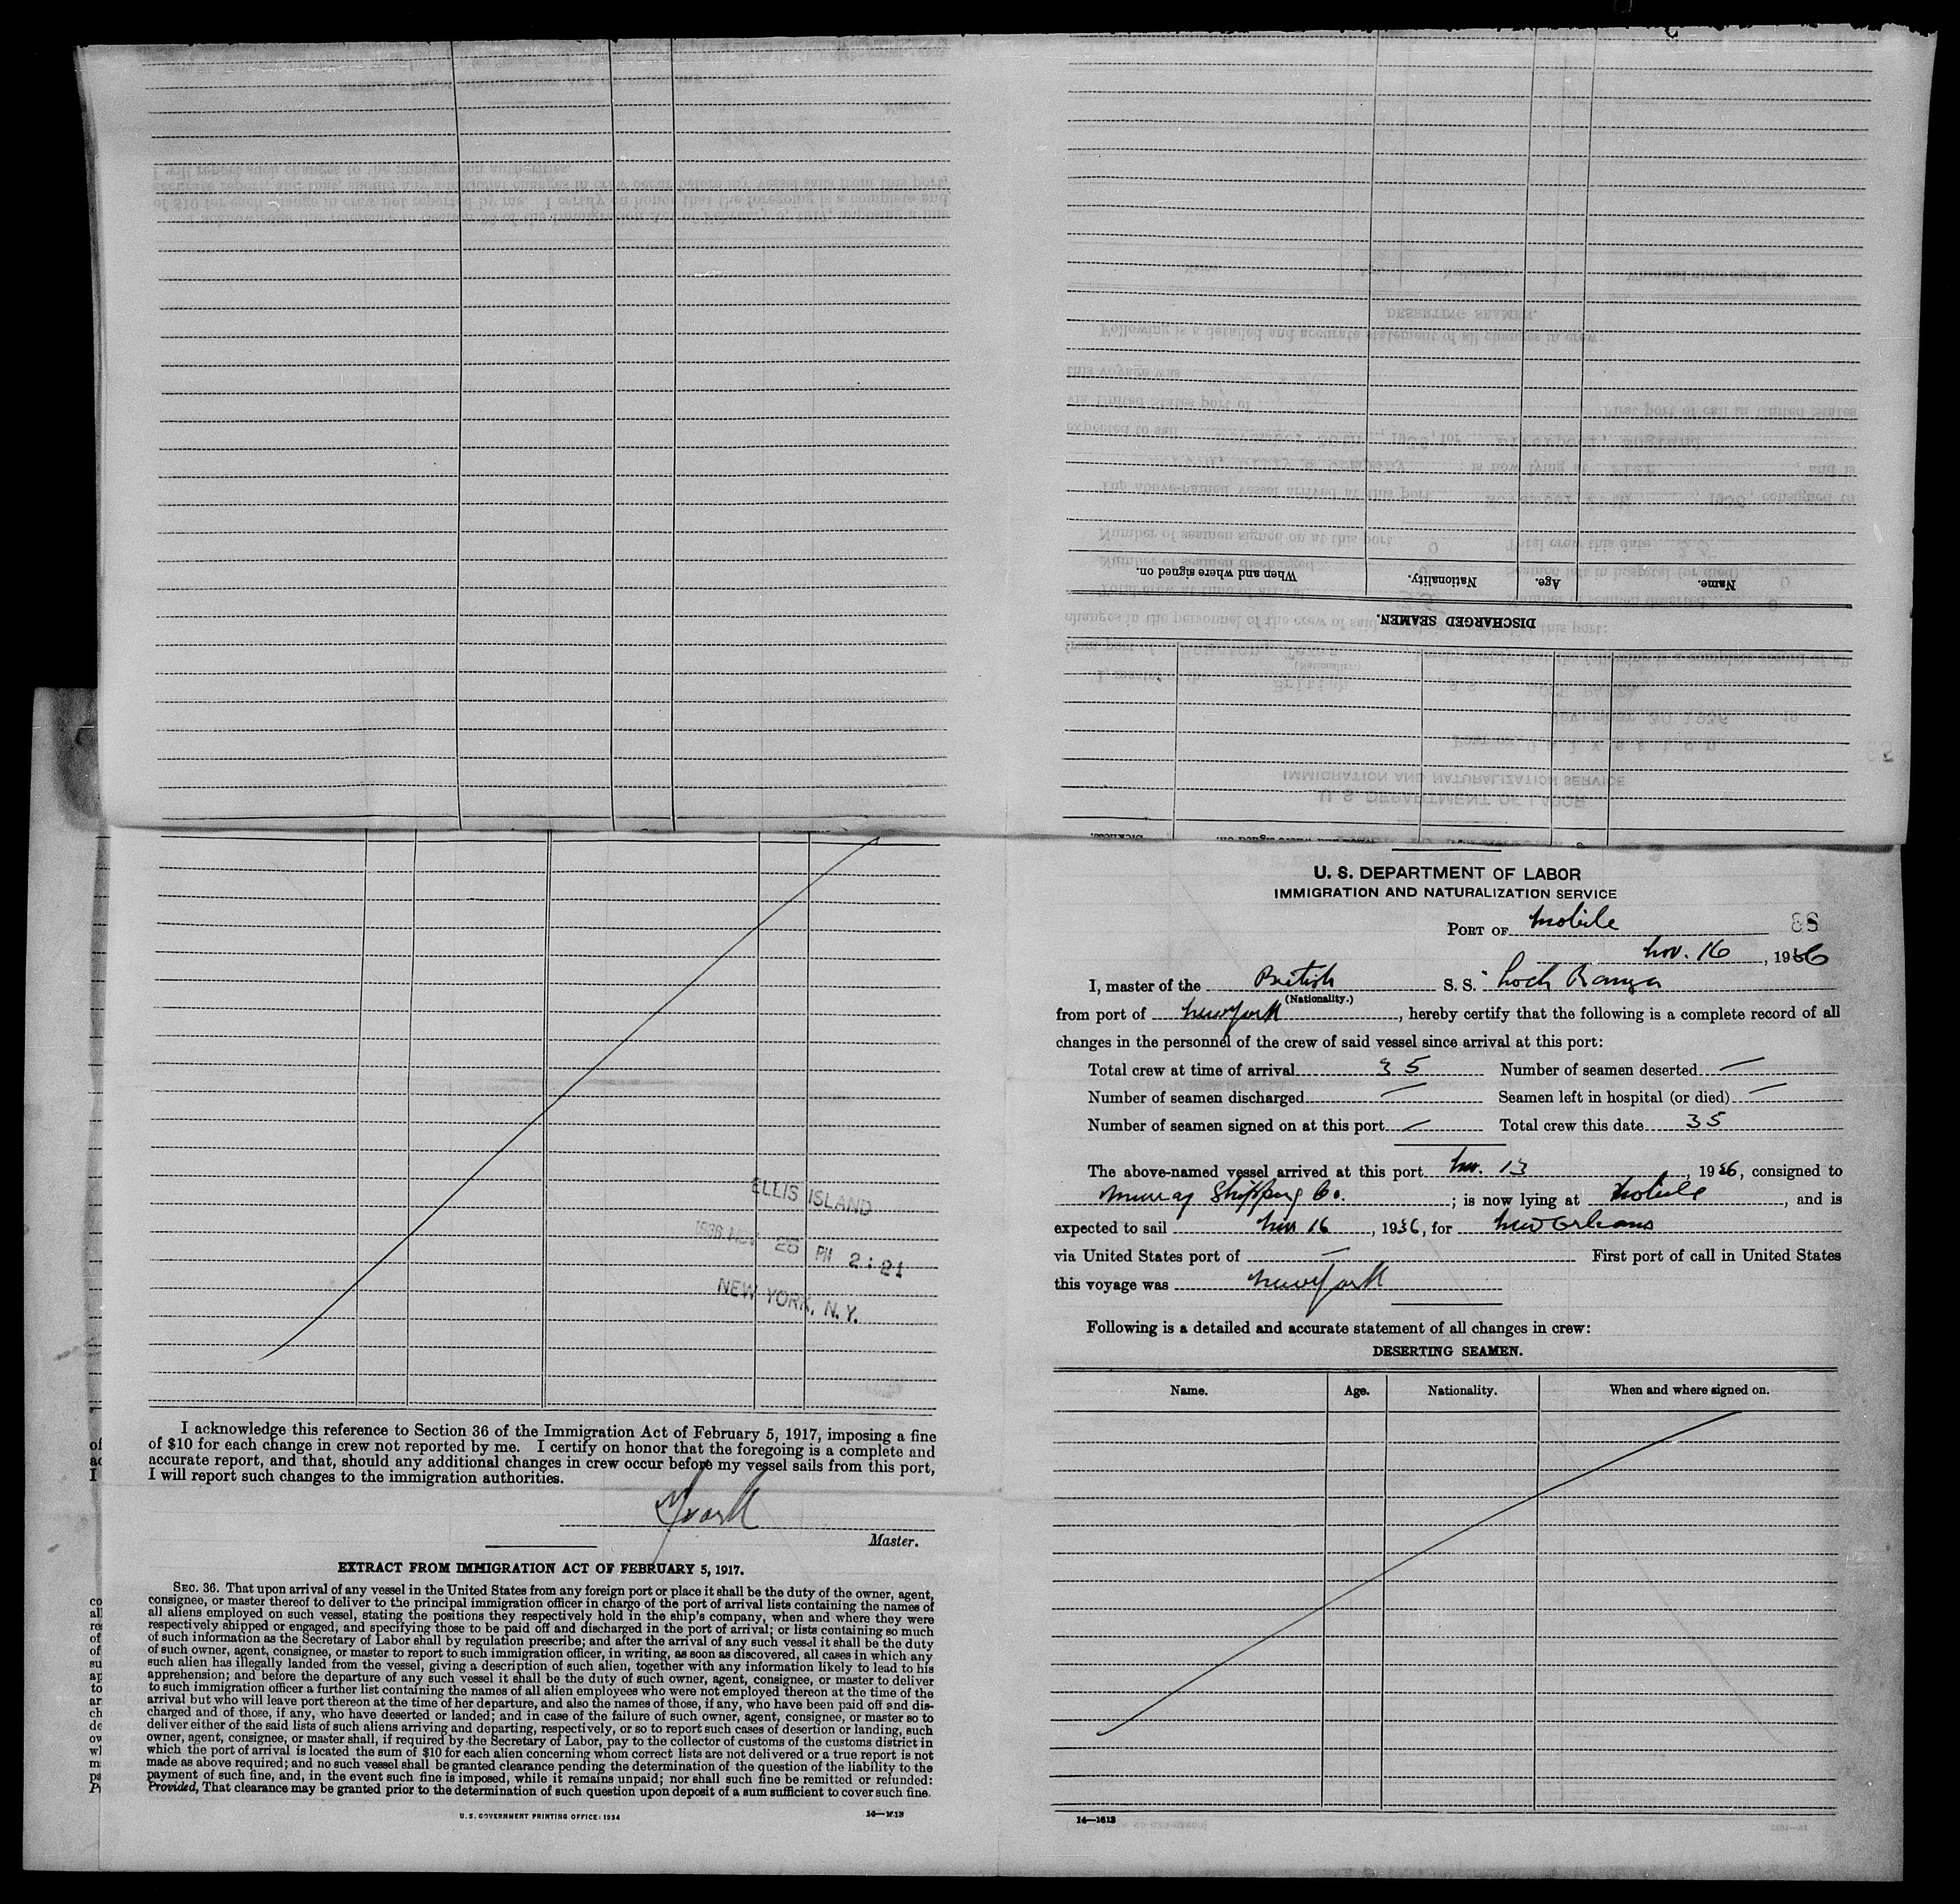 DISCHARGED SEAMEN.
Name.
Age.
Nationality.
When and where signed on.
U. S. DEPARTMENT OF LABOR
IMMIGRATION AND NATURALIZATION SERVICE
PORT OF Mobile
Nov. 16, 1936
I, master of the British S. S. Loch Ranza
(Nationality.)
from port of New York, hereby certify that the following is a complete record of all
changes in the personnel of the crew of said vessel since arrival at this port:
Total crew at time of arrival 35 Number of seamen deserted —
Number of seamen discharged — Seamen left in hospital (or died) —
Number of seamen signed on at this port — Total crew this date 35
The above-named vessel arrived at this port Nov. 13, 1936, consigned to
Murray Shipping Co.; is now lying at Mobile, and is
expected to sail Nov 16, 1936, for New Orleans
via United States port of — First port of call in United States
this voyage was New York
Following is a detailed and accurate statement of all changes in crew:
DESERTING SEAMEN.
Name. Age. Nationality. When and where signed on.
14—1613
ELLIS ISLAND
1936 NOV 25 PM 2:21
NEW YORK, N. Y.
I acknowledge this reference to Section 36 of the Immigration Act of February 5, 1917, imposing a fine
of $10 for each change in crew not reported by me. I certify on honor that the foregoing is a complete and
accurate report, and that, should any additional changes in crew occur before my vessel sails from this port,
I will report such changes to the immigration authorities.
Master.
EXTRACT FROM IMMIGRATION ACT OF FEBRUARY 5, 1917.
SEC. 36. That upon arrival of any vessel in the United States from any foreign port or place it shall be the duty of the owner, agent,
consignee, or master thereof to deliver to the principal immigration officer in charge of the port of arrival lists containing the names of
all aliens employed on such vessel, stating the positions they respectively hold in the ship's company, when and where they were
respectively shipped or engaged, and specifying those to be paid off and discharged in the port of arrival; or lists containing so much
of such information as the Secretary of Labor shall by regulation prescribe; and after the arrival of any such vessel it shall be the duty
of such owner, agent, consignee, or master to report to such immigration officer, in writing, as soon as discovered, all cases in which any
such alien has illegally landed from the vessel, giving a description of such alien, together with any information likely to lead to his
apprehension; and before the departure of any such vessel it shall be the duty of such owner, agent, consignee, or master to deliver
to such immigration officer a further list containing the names of all alien employees who were not employed thereon at the time of the
arrival but who will leave port thereon at the time of her departure, and also the names of those, if any, who have been paid off and dis-
charged and of those, if any, who have deserted or landed; and in case of the failure of such owner, agent, consignee, or master so to
deliver either of the said lists of such aliens arriving and departing, respectively, or so to report such cases of desertion or landing, such
owner, agent, consignee, or master shall, if required by the Secretary of Labor, pay to the collector of customs of the customs district in
which the port of arrival is located the sum of $10 for each alien concerning whom correct lists are not delivered or a true report is not
made as above required; and no such vessel shall be granted clearance pending the determination of the question of the liability to the
payment of such fine, and, in the event such fine is imposed, while it remains unpaid; nor shall such fine be remitted or refunded:
Provided, That clearance may be granted prior to the determination of such question upon deposit of a sum sufficient to cover such fine.
U. S. GOVERNMENT PRINTING OFFICE: 1934
14—1613